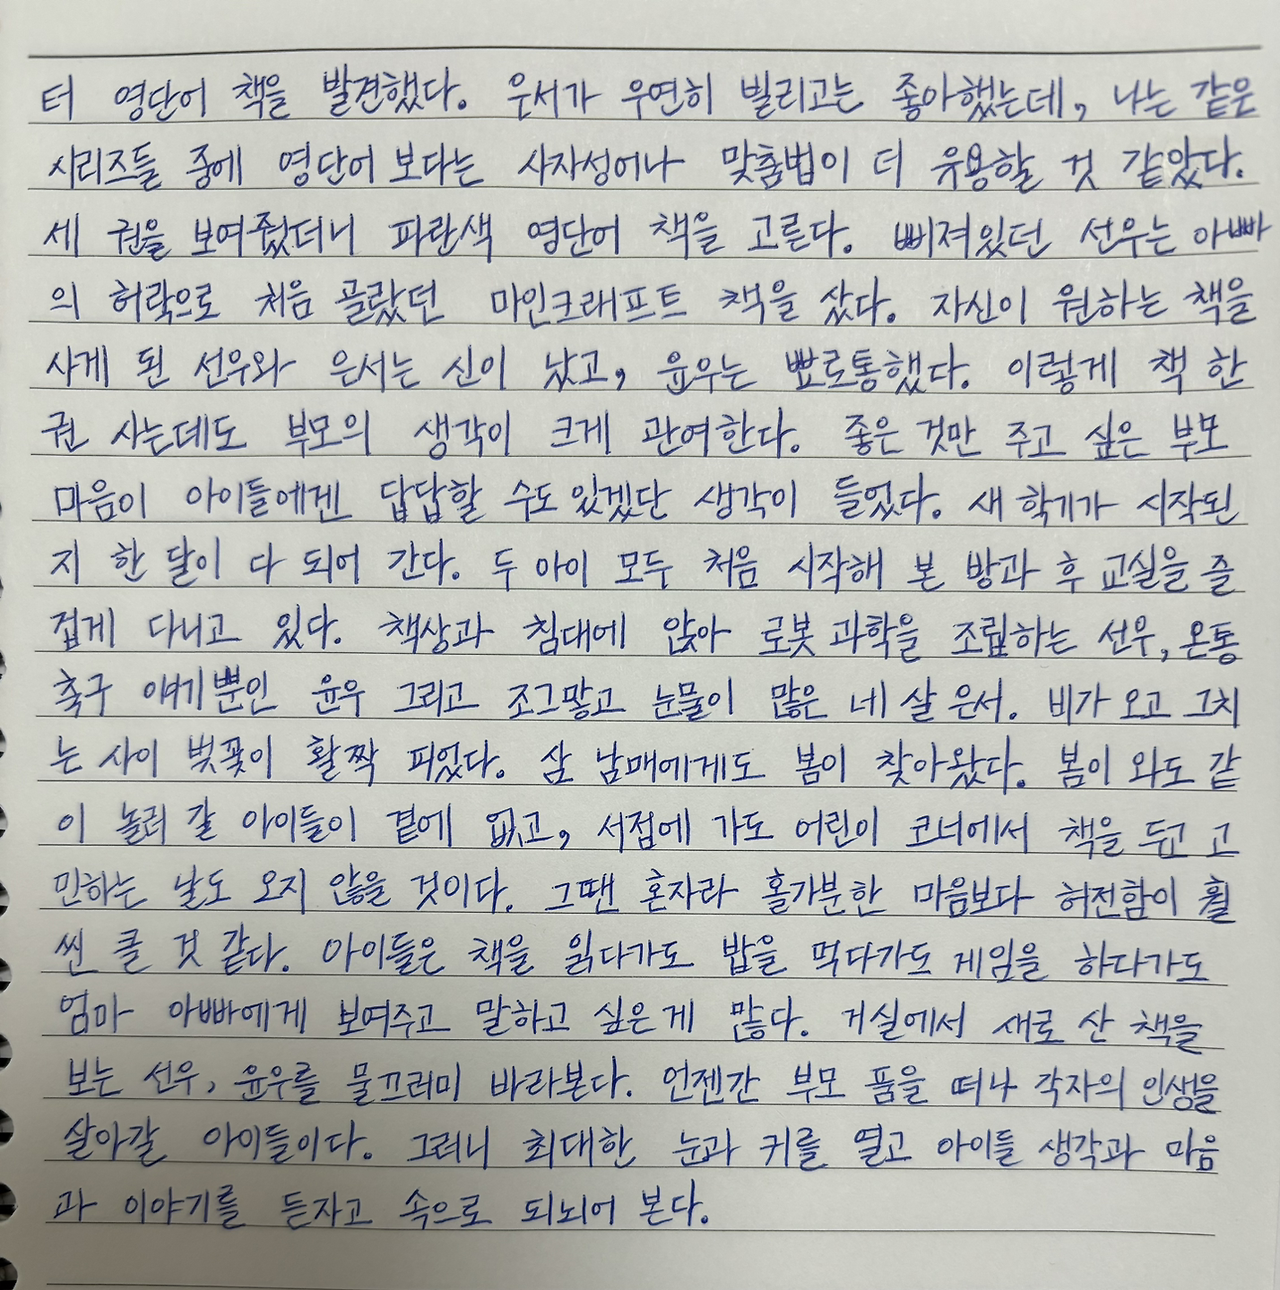 터 영단어 책을 발견했다. 은서가 우연히 빌리고는 좋아했는데, 나는 같은
시리즈들 중에 영단어 보다는 사자성어나 맞춤법이 더 유용할 것 같았다.
세 권을 보여줬더니 파란색 영단어 책을 고른다. 삐져있던 선우는 아빠
의 허락으로 처음 골랐던 마인크래프트 책을 샀다. 자신이 원하는 책을
사게 된 선우와 은서는 신이 났고, 윤우는 뾰로통했다. 이렇게 책 한
권 사는데도 부모의 생각이 크게 관여한다. 좋은 것만 주고 싶은 부모
마음이 아이들에겐 답답할 수도 있겠단 생각이 들었다. 새 학기가 시작된
지 한 달이 다 되어 간다. 두 아이 모두 처음 시작해 본 방과 후 교실을 즐
겁게 다니고 있다. 책상과 침대에 앉아 로봇 과학을 조립하는 선우, 온통
축구 얘기뿐인 윤우 그리고 조그맣고 눈물이 많은 네 살 은서. 비가 오고 그치
는 사이 벚꽃이 활짝 피었다. 삼 남매에게도 봄이 찾아왔다. 봄이 와도 같
이 놀러 갈 아이들이 곁에 없고, 서점에 가도 어린이 코너에서 책을 두고 고
민하는 날도 오지 않을 것이다. 그땐 혼자라 홀가분한 마음보다 허전함이 훨
씬 클 것 같다. 아이들은 책을 읽다가도 밥을 먹다가도 게임을 하다가도
엄마 아빠에게 보여주고 말하고 싶은게 많다. 거실에서 새로 산 책을
보는 선우, 윤우를 물끄러미 바라본다. 언젠간 부모 품을 떠나 각자의 인생을
살아갈 아이들이다. 그러니 최대한 눈과 귀를 열고 아이들 생각과 마음
과 이야기를 듣자고 속으로 되뇌어 본다.